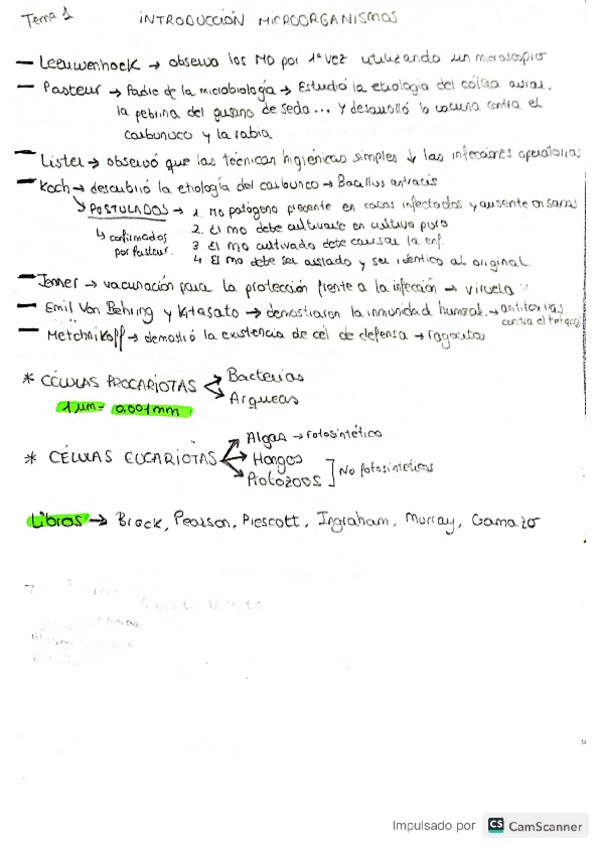 Tema 1
INTRODUCCIÓN MICROORGANISMOS
— Leeuwenhock → observo los MO por 1ª vez utilizando un microscopio
— Pasteur → Padre de la microbiología → Estudió la etiologia del cólera aviar,
la pebrina del gusano de seda... y desarrolló la vacuna contra el
carbunco y la rabia
— Lister → observó que las técnicas higiénicas simples ↓ las infecciones operatorias
— Koch → descubrió la etiología del carbunco → Bacillus antracis
↳ POSTULADOS → 1. MO patógeno presente en casos infectados y ausente en sanos
2. El mo debe cultivarse en cultivo puro
3 El mo cultivado debe causar la enf.
4. El mo debe ser aislado y ser idéntico al original
↳ confirmados
por Pasteur.
— Jenner → vacunación para la protección frente a la infección → viruela
— Emil Von Behring y Kitasato → demostraron la inmunidad humoral. → antitoxinas
contra el tétanos
— Metchnikoff → demostró la existencia de cel de defensa → fagocitos
* CÉLULAS PROCARIOTAS
Bacterias
Arqueas
1 µm = 0.001 mm
* CÉLULAS EUCARIOTAS
Algas → fotosintético
Hongos
Protozoos
No fotosintéticos
Libros → Brock, Pearson, Prescott, Ingraham, Murray, Gamazo
Impulsado por CS CamScanner